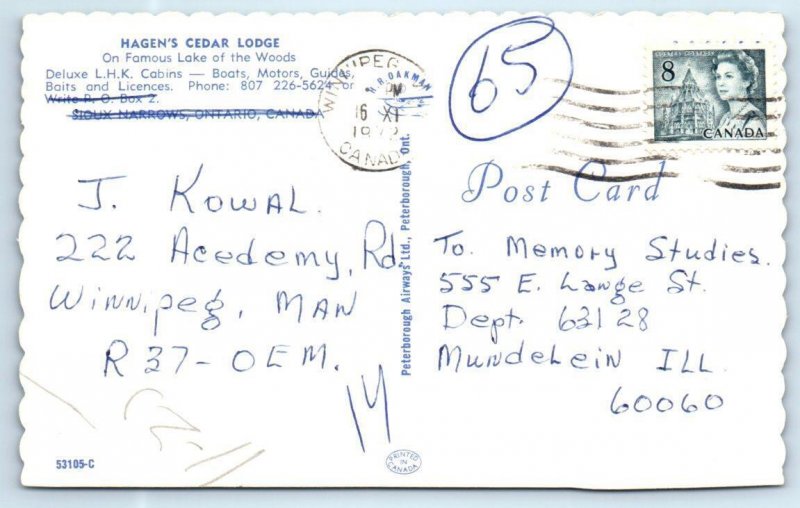 HAGEN'S CEDAR LODGE
On Famous Lake of the Woods
Deluxe L.H.K. Cabins — Boats, Motors, Guides,
Baits and Licences. Phone: 807 226-5624 or
Write P. O. Box 2.
SIOUX NARROWS, ONTARIO, CANADA
WINNIPEG
PM
16 XI
CANADA
R.R. OAKMAN
65
8
POSTES POSTAGE
CANADA
Post Card
J. KOWAL.
222 Acedemy, Rd.
Winnipeg, MAN
R37-OEM.
14
Peterborough Airways Ltd., Peterborough, Ont.
To. Memory Studies.
555 E. Lange St.
Dept. 63128
Mundelein ILL.
60060
53105-C
PRINTED
IN
CANADA